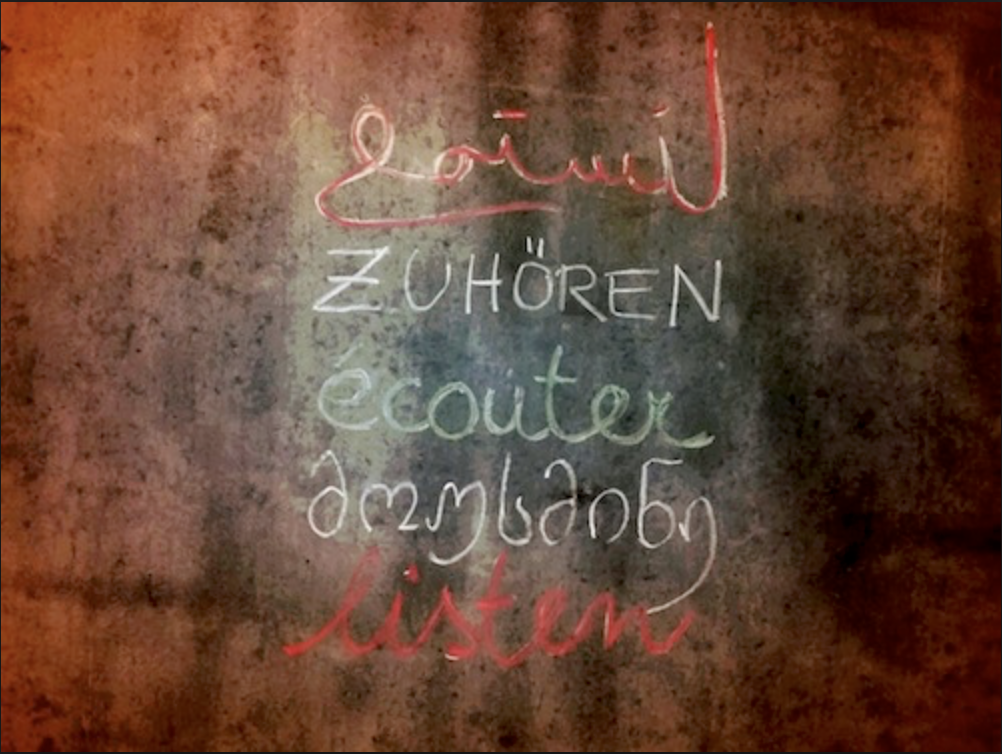 لنستمع
ZUHÖREN
écouter
მოუსმინე
listen